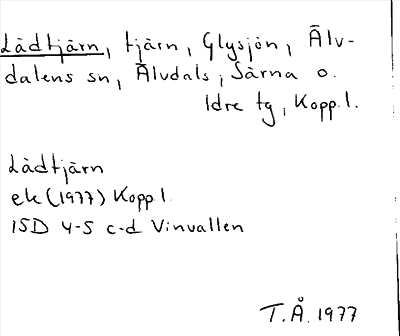 Lådtjärn, tjärn, Glysjön, Älv-
dalens sn, Älvdals, Särna o.
Idre tg, Kopp.l.
Lådtjärn
ek (1977) Kopp.l.
15D 4-5 c-d Vinvallen
T.Å. 1977